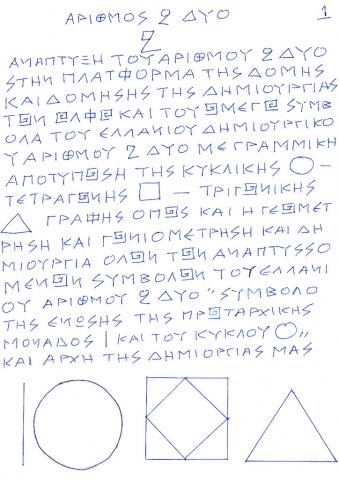 ΑΡΙΘΜΟΣ 2 ΔΥΟ
1
2
ΑΝΑΠΤΥΞΗ ΤΟΥ ΑΡΙΘΜΟΥ 2 ΔΥΟ
ΣΤΗΝ ΠΛΑΤΦΟΡΜΑ ΤΗΣ ΔΟΜΗΣ
ΚΑΙ ΔΟΜΗΣΗΣ ΤΗΣ ΔΗΜΙΟΥΡΓΙΑΣ
ΤΩΝ ΑΛΦΑ ΚΑΙ ΤΟΥ ΩΜΕΓΑ ΣΥΜΒ
ΟΛΑ ΤΟΥ ΕΛΛΑΝΙΟΥ ΔΗΜΙΟΥΡΓΙΚΟ
Υ ΑΡΙΘΜΟΥ 2 ΔΥΟ ΜΕ ΓΡΑΜΜΙΚΗ
ΑΠΟΤΥΠΩΣΗ ΤΗΣ ΚΥΚΛΙΚΗΣ ○ –
ΤΕΤΡΑΓΩΝΗΣ □ – ΤΡΙΓΩΝΙΚΗΣ
△ ΓΡΑΦΗΣ ΟΠΩΣ ΚΑΙ Η ΓΕΩΜΕΤ
ΡΗΣΗ ΚΑΙ ΓΩΝΙΟΜΕΤΡΗΣΗ ΚΑΙ ΔΗ
ΜΙΟΥΡΓΙΑ ΟΛΩΝ ΤΩΝ ΑΝΑΠΤΥΣΣΟ
ΜΕΝΩΝ ΣΥΜΒΟΛΩΝ ΤΟΥ ΕΛΛΑΝΙ
ΟΥ ΑΡΙΘΜΟΥ 2 ΔΥΟ "ΣΥΜΒΟΛΟ
ΤΗΣ ΕΝΩΣΗΣ ΤΗΣ ΠΡΩΤΑΡΧΙΚΗΣ
ΜΟΝΑΔΟΣ | ΚΑΙ ΤΟΥ ΚΥΚΛΟΥ ○,,
ΚΑΙ ΑΡΧΗ ΤΗΣ ΔΗΜΙΟΡΓΙΑΣ ΜΑΣ